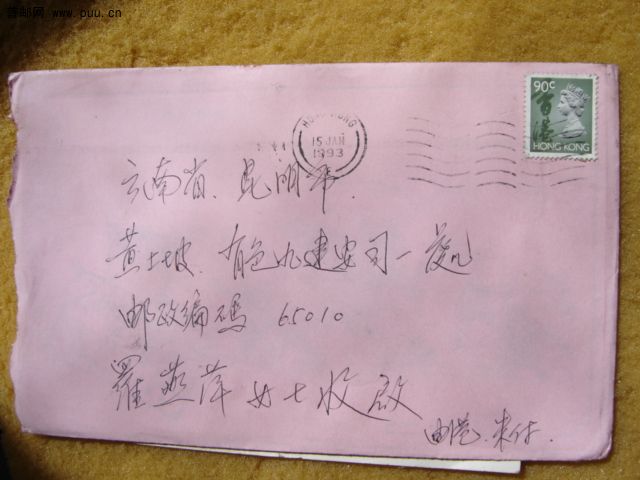 普邮网 www.puu.cn
90c
香港
HONG KONG
HONG KONG
15 JAN
1993
云南省.昆明市.
黄土坡.有色九建安司一
邮政编码 65010
羅燕萍女士收啟
由港.朱付.